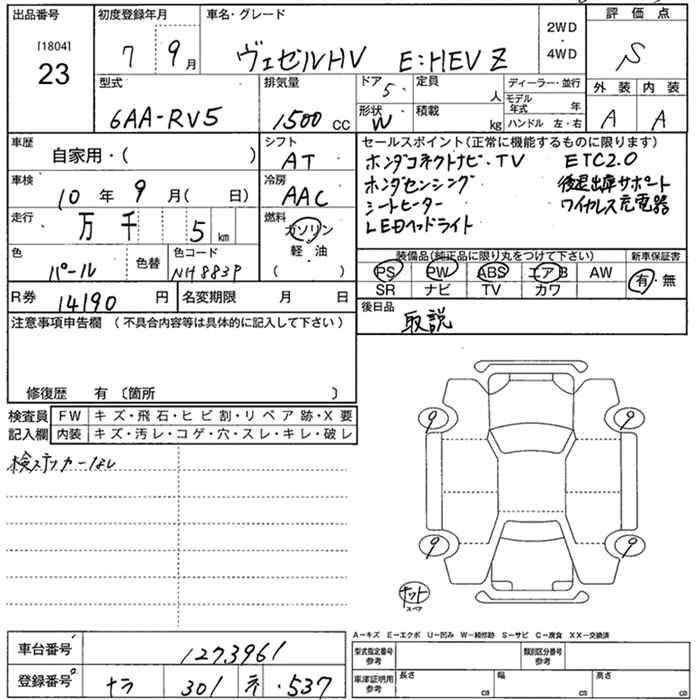 出品番号 初度登録年月 車名・グレード 評価点
[1804] 23 7 9月 ヴェゼルHV E:HEV Z 2WD・4WD S
型式 排気量 ドア 5 定員 人 ディーラー・並行 外装 内装
6AA-RV5 1500 cc 形状 W 積載 kg モデル年式 年 ハンドル 左・右 A A
車歴 自家用・( ) シフト AT セールスポイント(正常に機能するものに限ります)
ホンダコネクトナビ・TV ETC2.0
車検 10年 9月( 日) 冷房 AAC ホンダセンシング 後退出庫サポート
シートヒーター ワイヤレス充電器
走行 万 千 5 km 燃料 ガソリン 軽油 ( ) LEDヘッドライト
色 パール 色替 色コード NH883P 装備品(純正品に限り丸をつけて下さい) 新車保証書
PS PW ABS エアB AW 有・無
R券 14190 円 名変期限 月 日 SR ナビ TV カワ
注意事項申告欄(不具合内容等は具体的に記入して下さい) 後日品 取説
修復歴 有 〔箇所 〕
検査員記入欄 FW キズ・飛石・ヒビ割・リペア跡・X要
内装 キズ・汚レ・コゲ・穴・スレ・キレ・破レ
検ステッカーなし
9 9
9 9
ナット
スペア
A-キズ E-エクボ U-凹み W-補修跡 S-サビ C-腐食 XX-交換済
車台番号 1273961 型式指定番号 参考 類別区分番号 参考
登録番号 ナラ 301 ・537 車庫証明用 参考 長さ cm 幅 cm 高さ cm